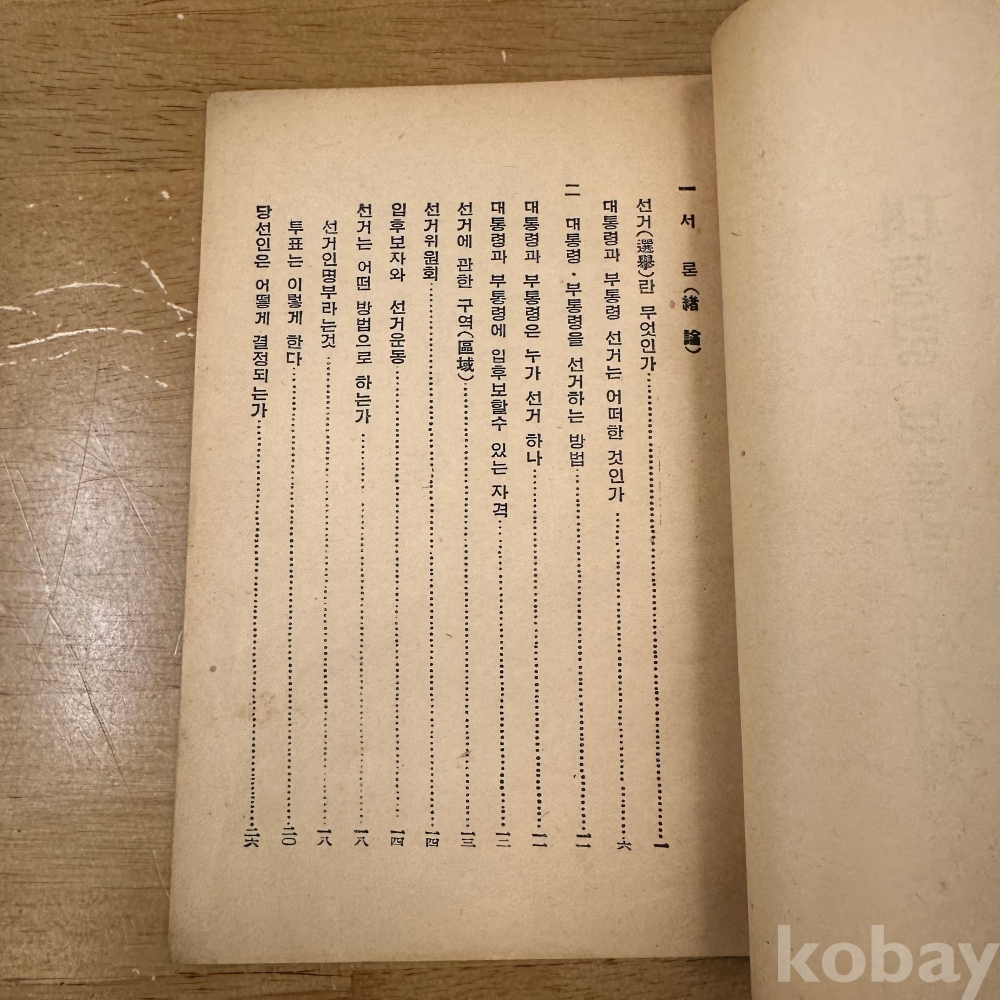 一 서 론(緖 論)
선거(選擧)란 무엇인가……一
대통령과 부통령 선거는 어떠한 것인가……六
二 대통령・부통령을 선거하는 방법……一一
대통령과 부통령은 누가 선거 하나……一一
대통령과 부통령에 입후보할수 있는 자격……一二
선거에 관한 구역(區域)……一三
선거위원회……一四
입후보자와 선거운동……一四
선거는 어떤 방법으로 하는가……一八
선거인명부라는것……一八
투표는 이렇게 한다……二〇
당선인은 어떻게 결정되는가……二六
kobay